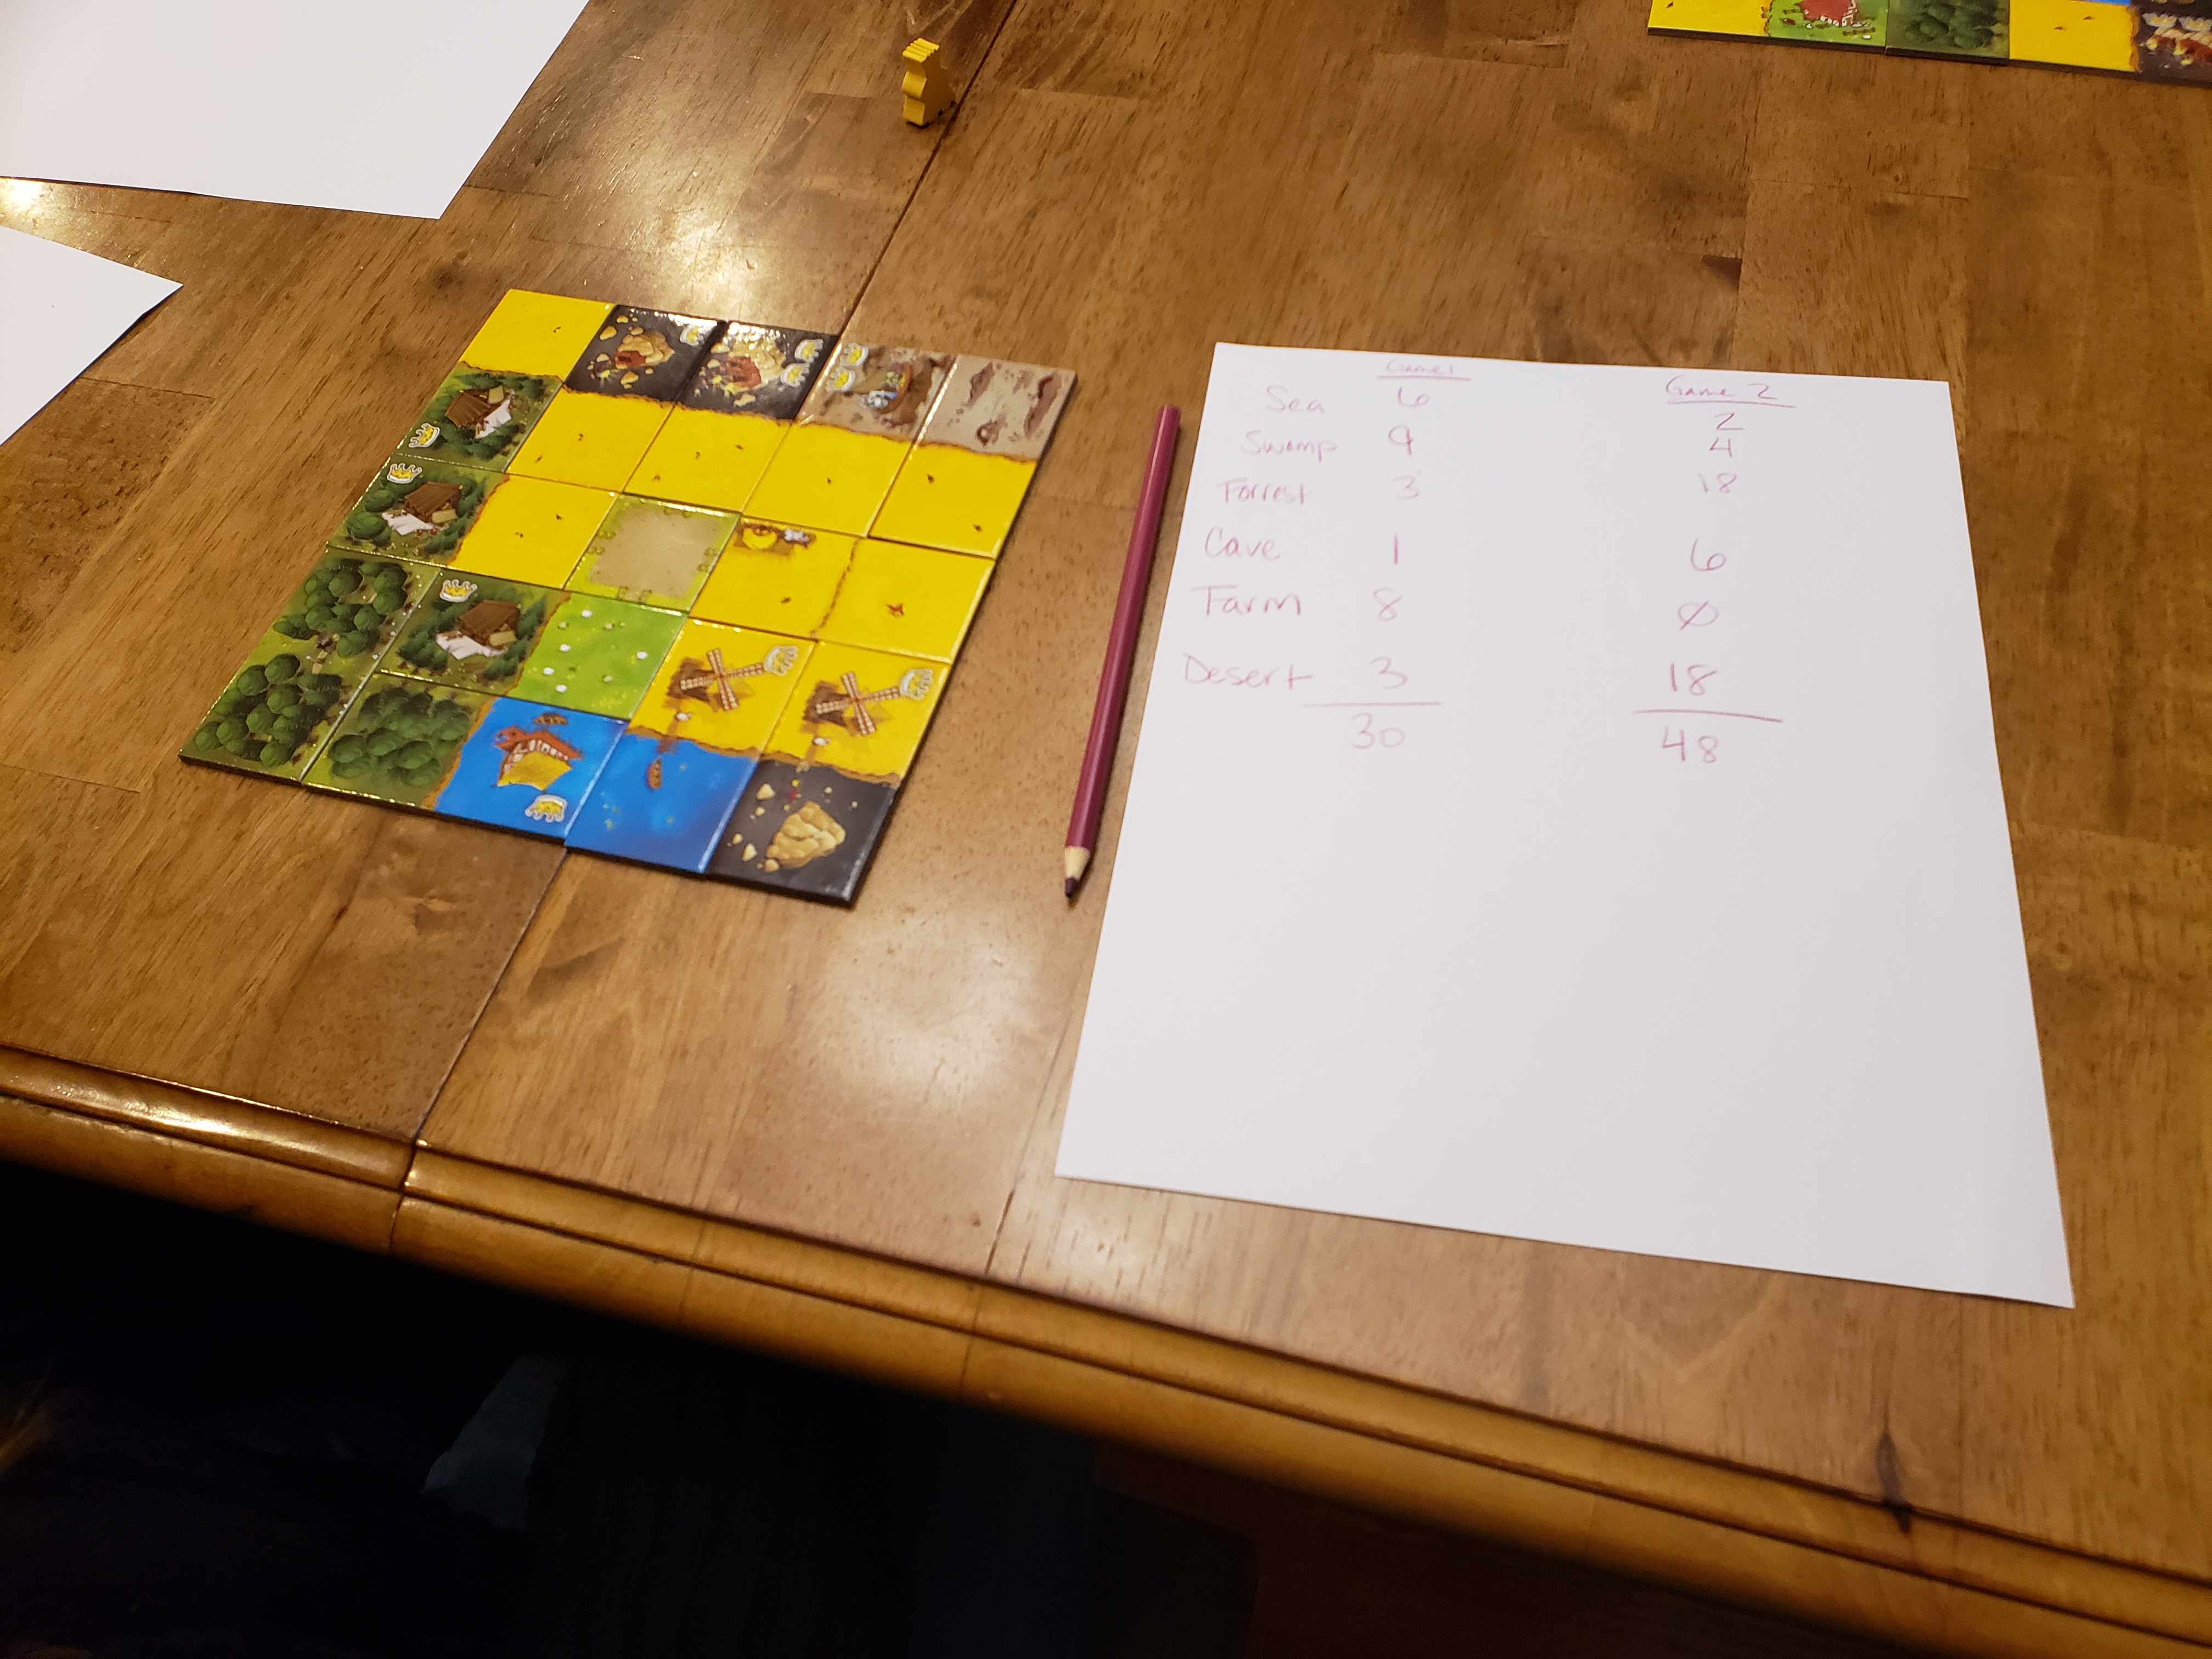 Game 1 Game 2
Sea 6 2
Swamp 9 4
Forrest 3 18
Cave 1 6
Farm 8 0
Desert 3 18
30 48